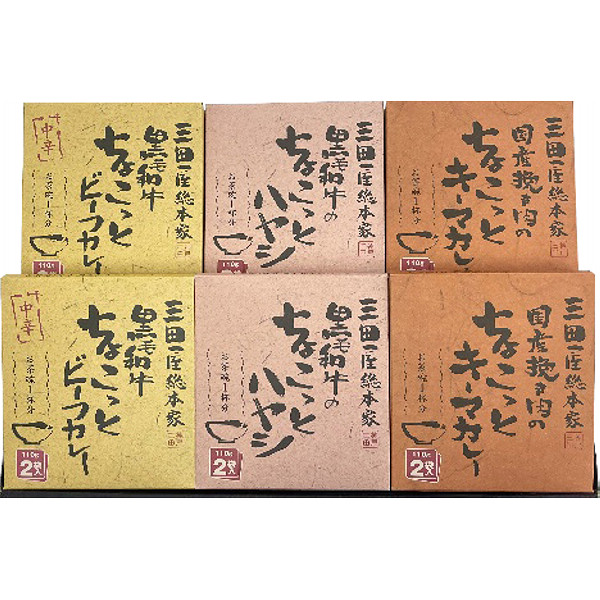 三田屋総本家
黒毛和牛
ちょこっと
ビーフカレー
中辛
お茶碗1杯分
110g
三田屋総本家
黒毛和牛の
ちょこっと
ハヤシ
お茶碗1杯分
110g
三田屋総本家
国産挽き肉の
ちょこっと
キーマカレー
お茶碗1杯分
110g
三田屋総本家
黒毛和牛
ちょこっと
ビーフカレー
中辛
お茶碗1杯分
110g
2袋入
三田屋総本家
黒毛和牛の
ちょこっと
ハヤシ
お茶碗1杯分
110g
2袋入
三田屋総本家
国産挽き肉の
ちょこっと
キーマカレー
お茶碗1杯分
110g
2袋入